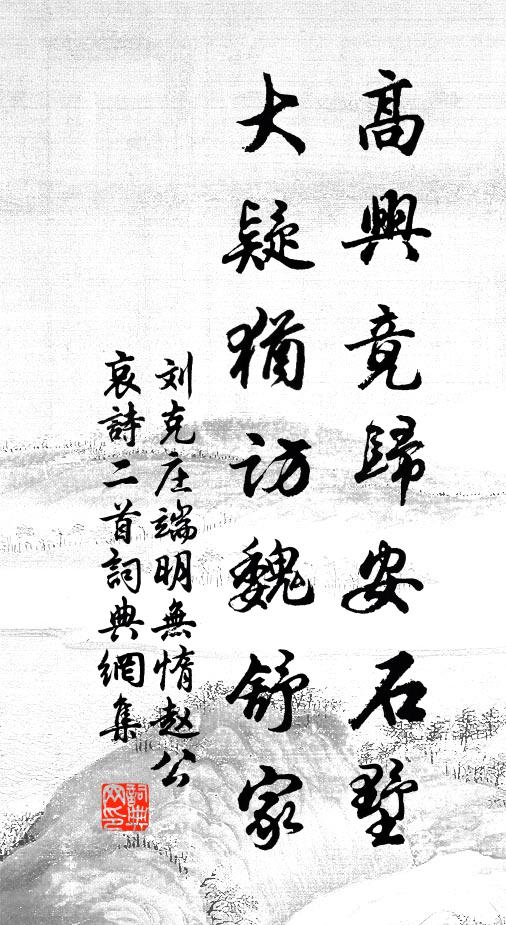 高興竟歸安石墅
大疑猶訪魏舒家
刘克庄端明無惰赵公
哀詩二首詞典網集
詞典网印